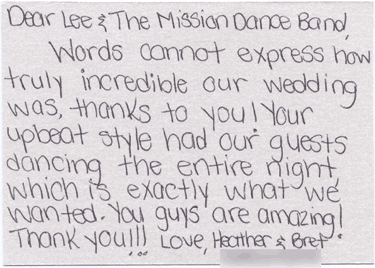 Dear Lee & The Mission Dance Band,
Words cannot express how
truly incredible our wedding
was, thanks to you! Your
upbeat style had our guests
dancing the entire night
which is exactly what we
wanted. You guys are amazing!
Thank you!!! Love, Heather & Bret